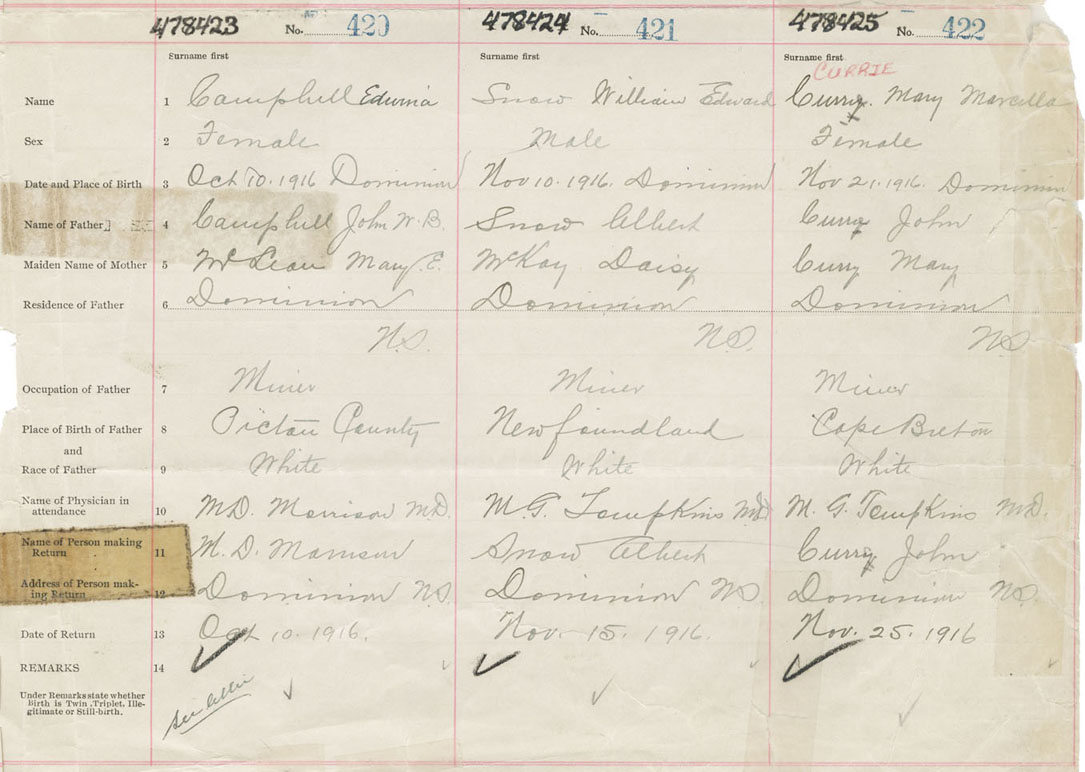 478423 No. 420 478424 No. 421 478425 No. 422
Surname first Surname first Surname first
CURRIE
Name 1 Campbell Edwina Snow William Edward Curry Mary Marcella
Sex 2 Female Male Female
Date and Place of Birth 3 Oct 10. 1916 Dominion Nov 10. 1916. Dominion Nov 21. 1916. Dominion
Name of Father 4 Campbell John W. B. Snow Albert Curry John
Maiden Name of Mother 5 McLean Mary E. McKay Daisy Curry Mary
Residence of Father 6 Dominion Dominion Dominion
N.S. N.S. N.S.
Occupation of Father 7 Miner Miner Miner
Place of Birth of Father 8 Pictou County Newfoundland Cape Breton
and
Race of Father 9 White White White
Name of Physician in
attendance 10 M.D. Morrison M.D. M. G. Tompkins M.D. M. G. Tompkins M.D.
Name of Person making
Return 11 M. D. Morrison Snow Albert Curry John
Address of Person mak-
ing Return 12 Dominion N.S. Dominion N.S. Dominion N.S.
Date of Return 13 Oct 10. 1916. Nov. 15. 1916. Nov. 25. 1916
REMARKS 14
Under Remarks state whether
Birth is Twin, Triplet, Ille-
gitimate or Still-birth.
See